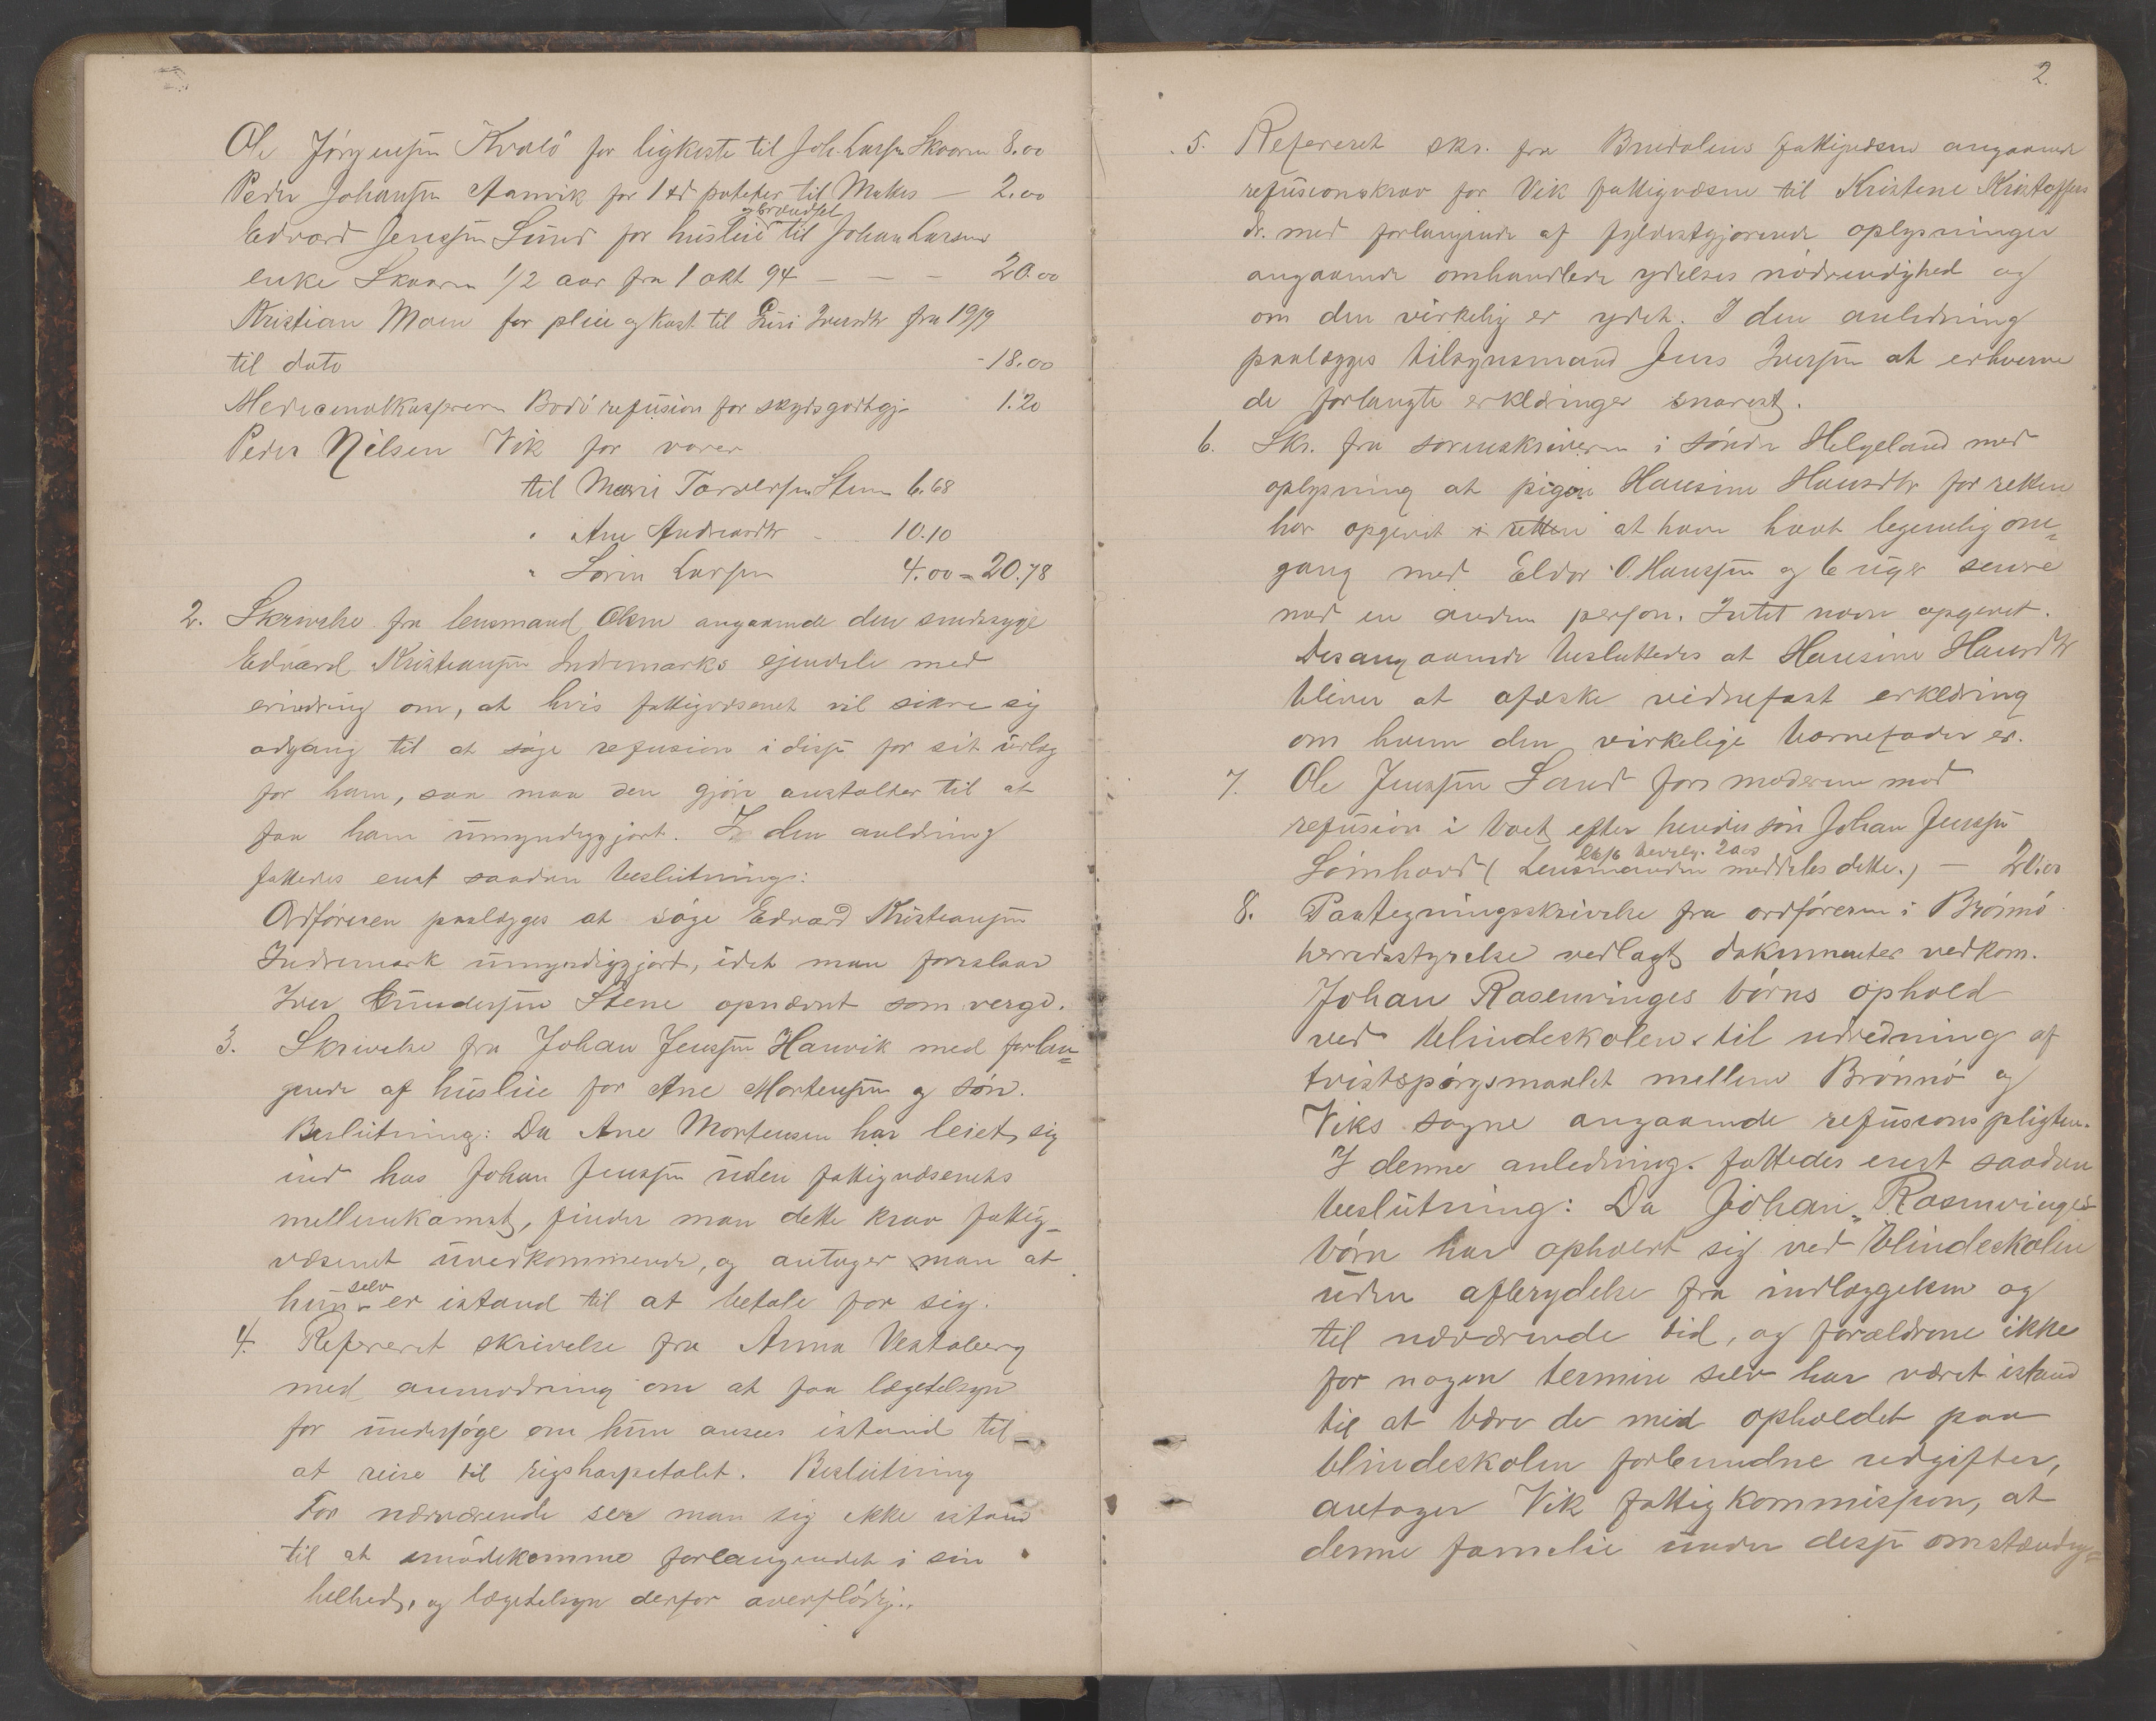 Ole Jörgensen Kvalö for ligkiste til Joh. Larsen Skaaren 8.00
Peder Johansen Aanvik for 1 td poteter til Mattes — 2.00
og brændsel
Edvard Jenssen Sund for husleie til Johan Larsens
enke Skaaren 1/2 aar fra 1 okt 94 — — — 20.00
Kristian Moen for pleie og kost til Guri Iversdtr fra 19/9
til dato - 18.00
Medicinalkassereren Bodö refusion for skydsgodtgj. 1.20
Peder Nilsen Vik for varer
til Marri Torversen Stene 6.68
" Ane Andreasdtr - 10.10
" Sörin Larsen 4.00 = 20.78
2. Skrivelse fra lensmand Olsen angaaende den sindssyge
Edvard Kristiansen Indremarks ejendele med
erindring om, at hvis fattigvæsenet vil sikre sig
adgang til at söge refusion i disse for sit udlæg
for ham, saa maa den gjöre anstalter til at
faa ham umyndiggjort. I den anledning
fattedes enst saadan beslutning:
Ordföreren paalægges at söge Edvard Kristiansen
Indremark umyndiggjort, idet man foreslaar
Iver Gundersen Stene opnævnt som verge.
3. Skrivelse fra Johan Jenssen Hamvik med forlan=
gende af husleie for Ane Mortensen og sön.
Beslutning: Da Ane Mortensen har leiet sig
ind hos Johan Jenssen uden fattigvæsenets
mellemkomst, finder man dette krav fattig-
væsenet uvedkommende, og antager man at
selv
hun er istand til at betale for sig.
4. Refereret skrivelse fra Anna Vestaberg
med anmodning om at faa lægetilsyn
for undersöge om hun ansees istand til
at reise til rigshospitalet. Beslutning
For nærværende ser man sig ikke istand
til at imödekomme forlangendet i sin
helhed, og lægetilsyn derfor overflödig.
2.
5. Refereret skr. fra Bindalens fattigvæsen angaaende
refusionskrav for Vik fattigvæsen til Kristine Kristoffers
dr. med forlangende af fyldestgjörende oplysninger
angaaende omhandlede ydelses nödvendighed og
om den virkelig er ydet. I den anledning
paalægges tilsynsmand Jens Iversen at erhverve
de forlangte erklæringer snarest.
6. Skr. fra sorenskriveren i söndre Helgeland med
oplysning at pigen Hansine Hansdtr for retten
har opgivet i retten at have havt legemlig om=
gang med Eldor O. Hanssen og 6 uger senere
med en anden person. Intet navn opgivet.
Desangaaende besluttedes at Hansine Hansdtr
bliver at afæske vidnefast erklæring
om hvem den virkelige barnefader er.
7. Ole Jenssen Sand fors moderen mod
refusion i boet efter hendes sön Johan Jenssen
26/6 bevilg. 20.-
Sömhovd (Lensmanden meddeles dette.) — 20.00
8. Paategningsskrivelse fra ordföreren i Brönnö
herredsstyrelse vedlagt dokumenter vedkom.
Johan Rosenvinges börns ophold
ved blindeskolen til udredning af
tvistspörgsmaalet mellem Brönnö og
Viks sogne angaaende refusionspligten.
I denne anledning fattedes enst saadan
beslutning: Da Johan Rosenvinges
börn har opholdt sig ved blindeskolen
uden afbrydelse fra indlæggelsen og
til nærværende tid, og forældrene ikke
for nogen termin selv har været istand
til at bære de med opholdet paa
blindeskolen forbundne udgifter,
antager Vik fattigkommission, at
denne familie under disse omstændig=